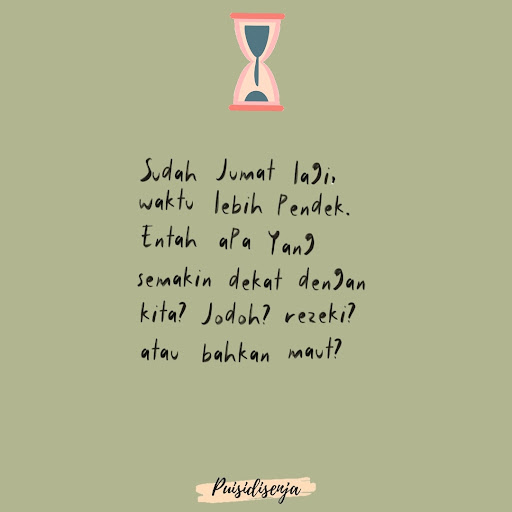 Sudah Jumat lagi,
waktu lebih Pendek.
Entah aPa Yang
semakin dekat dengan
kita? Jodoh? rezeki?
atau bahkan maut?
Puisidisenja